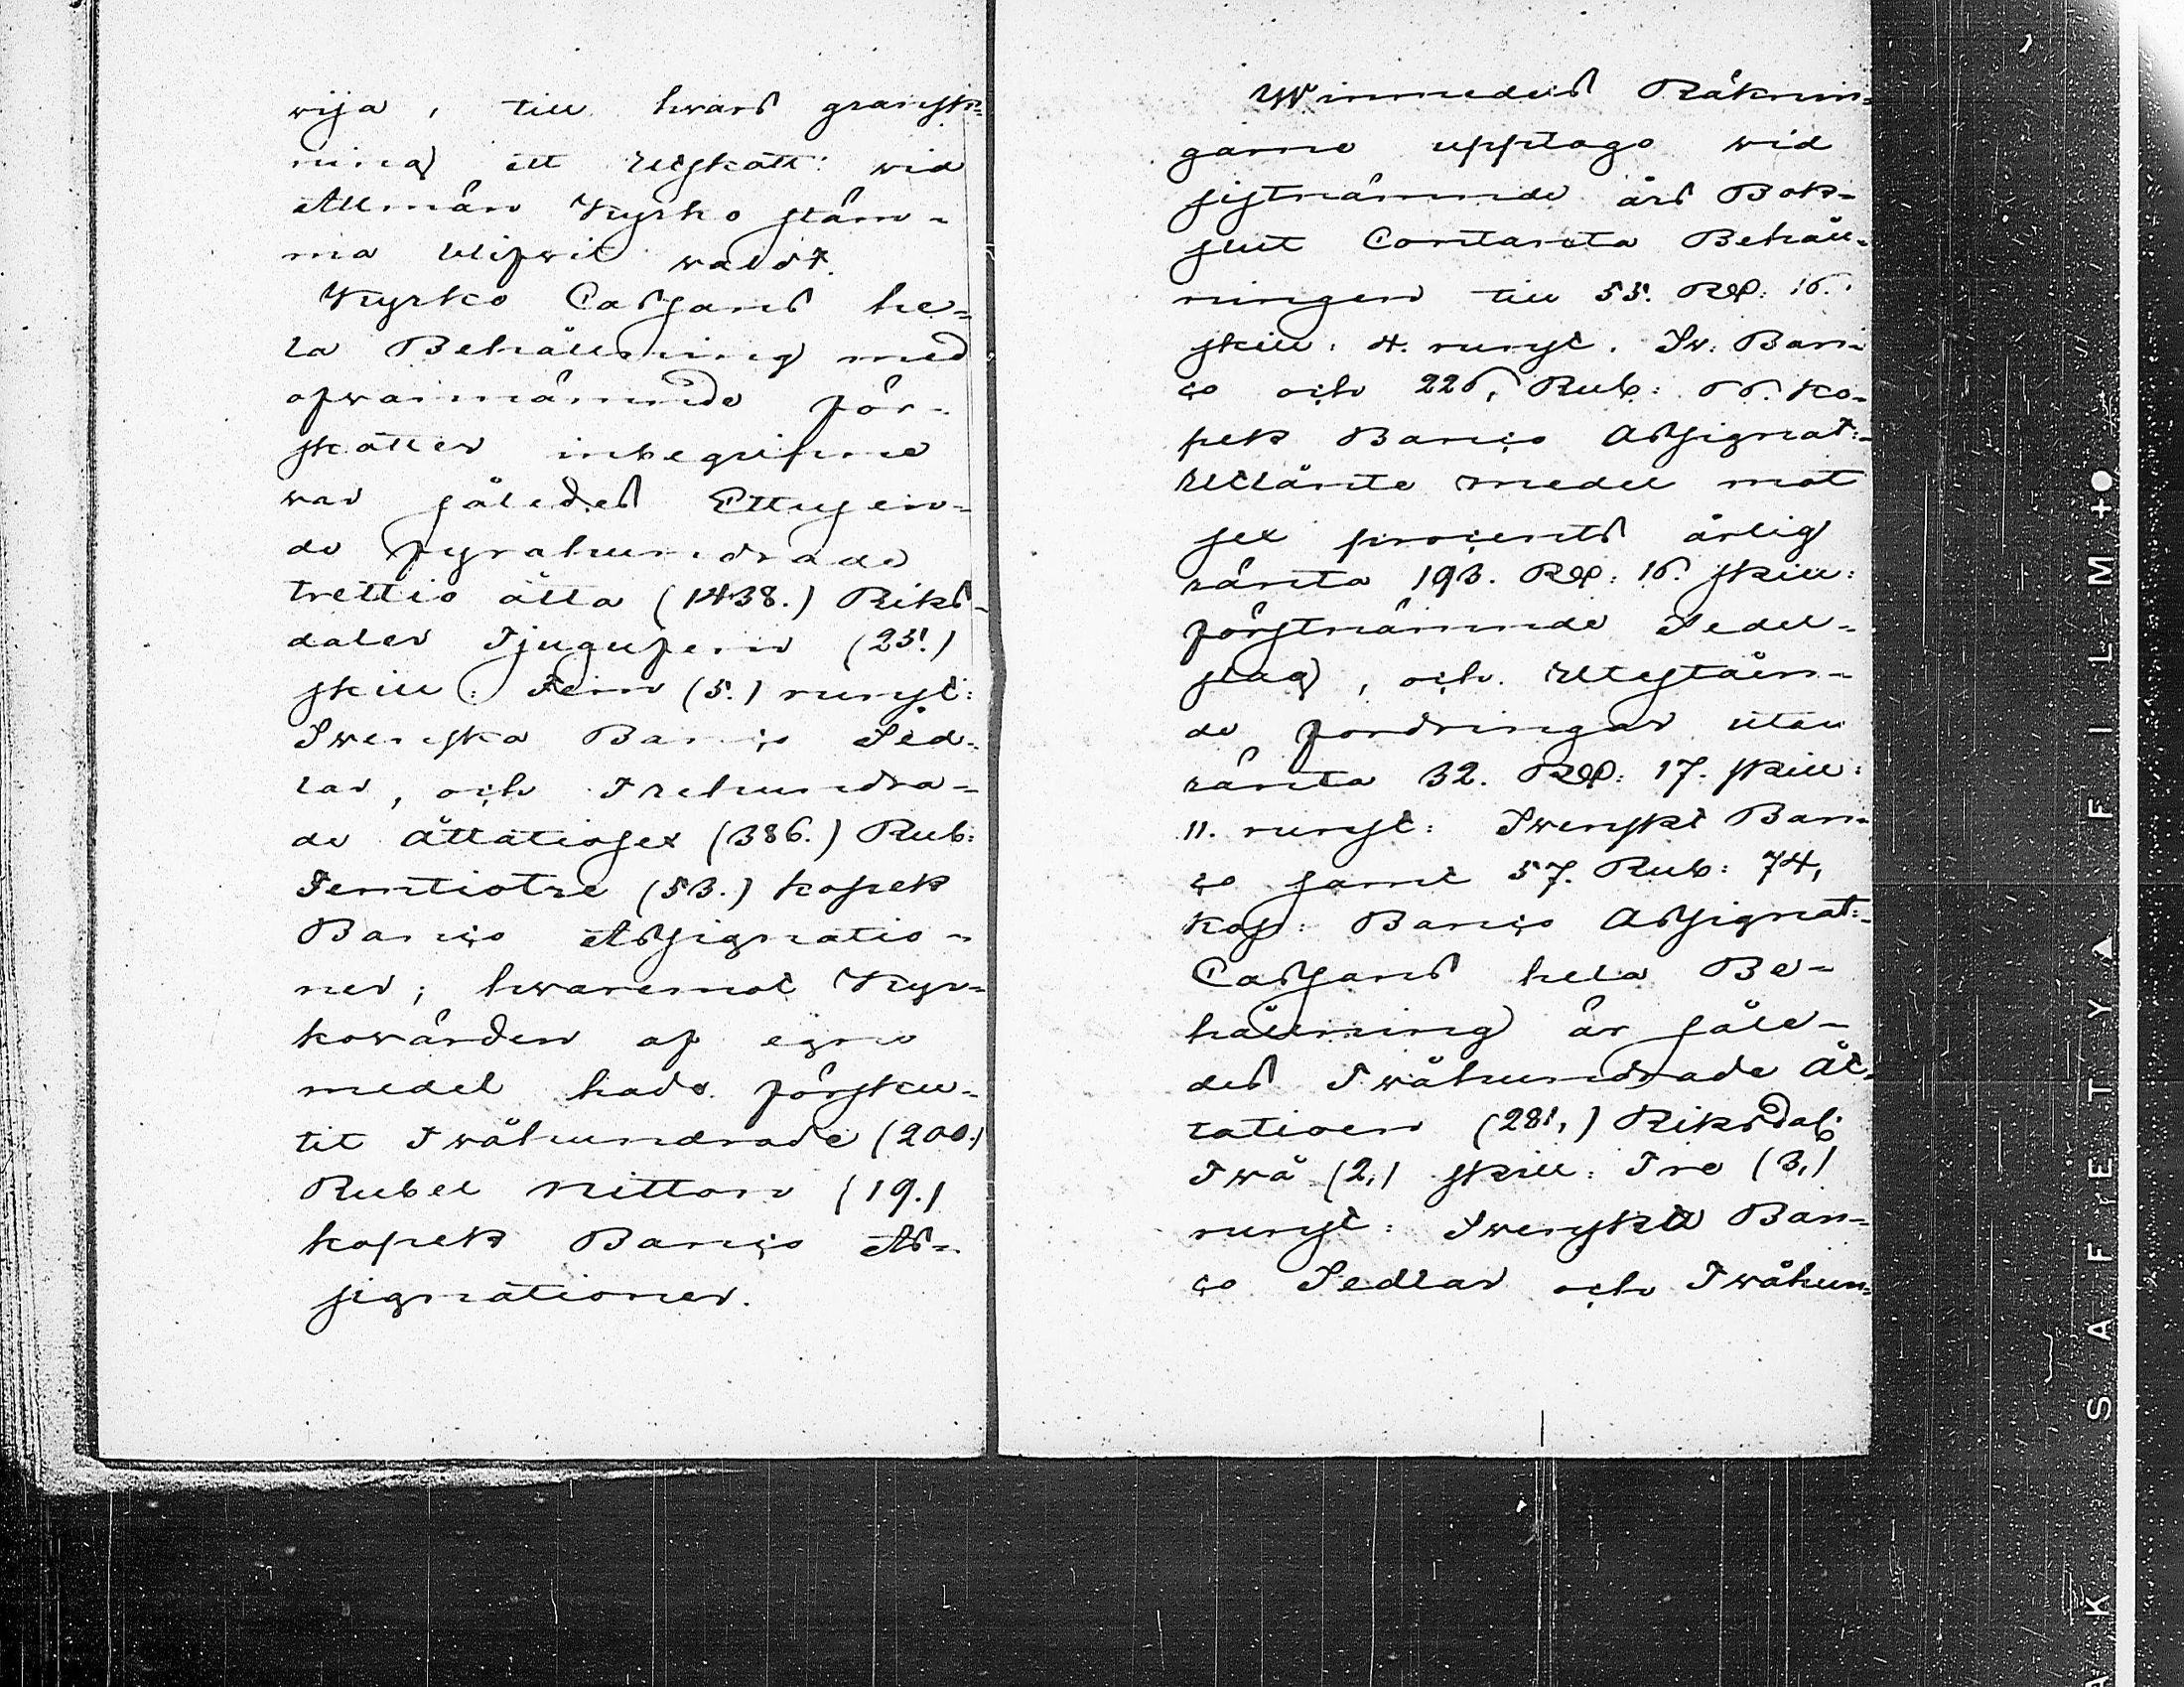 wija, till hwars gransk-
ning ett Utskått: wid
Allmän Kyrko stäm-
ma blifwit waldt.
Kyrko Cassans he-
la Behållning med
ofwannämnde för-
skåtter inbegripne
war således Ettusen-
de fyrahundrade
trettio åtta (1438.) Riks-
daler Tjugufem (25.)
skill: Fem (5.) runst:
Swenska Banco Sed-
lar, och Trehundra-
de åttatiosex (386.) Rub:
Femtiotre (53.) kopek
Banco Assignatio-
ner; hwaremot Kyr-
kowärden af egne
medel hade försku-
tit Twåhundrade (200.)
Rubel Nitton (19.)
kopek Banco As-
signationer.
Winmedels Räknin-
garne upptogo wid
sistnämnde års Bok-
slut Contanta Behåll-
ningen till 55. Rd: 16.
skill: 4. runst. Sw: Ban-
co och 226, Rub: 66. Ko-
pek Banco Assignat:
Utlånte medel mot
sex procents årlig
ränta 193. Rd: 16. skill:
förstnämnde Sedel-
slag, och Utestån-
de fordringar utan
ränta 32. Rd: 17. skill:
11. runst: Swenskt Ban-
co samt 57. Rub: 74,
Kop: Banco Assignat:
Cassans hela Be-
hållning är såle-
des Twåhundrade Åt-
tatioen (281,) Riksdal:
Twå (2,) skill: Tre (3,)
runst: Swenska Ban-
co Sedlar och Twåhun-
K SAFETY ▲ FILM +●